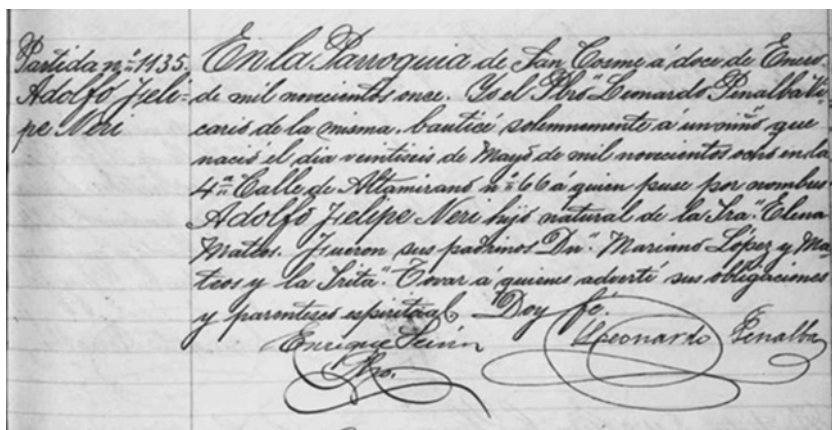 Partida nº 1135.
Adolfo Feli=
pe Neri
En la Parroquia de San Cosme á doce de Enero
de mil novecientos once. Yo el Pbro Leonardo Penalba Vi
cario de la misma, bauticé solemnemente á un niño que
nació el dia veintiseis de Mayo de mil novecientos ocho en la
4ª Calle de Altamirano nº 66 á quien puse por nombre
Adolfo Felipe Neri hijo natural de la Sra. Elena
Mattos. Fueron sus padrinos Dn. Mariano López y Ma
teos y la Srita. Tovar á quienes advertí sus obligaciones
y parentesco espiritual Doy fé.
Enrique Leonardo Penalba
Pbo.